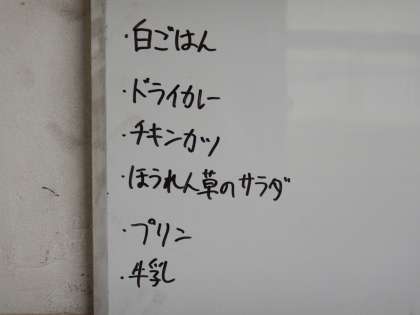 ・白ごはん
・ドライカレー
・チキンカツ
・ほうれん草のサラダ
・プリン
・牛乳